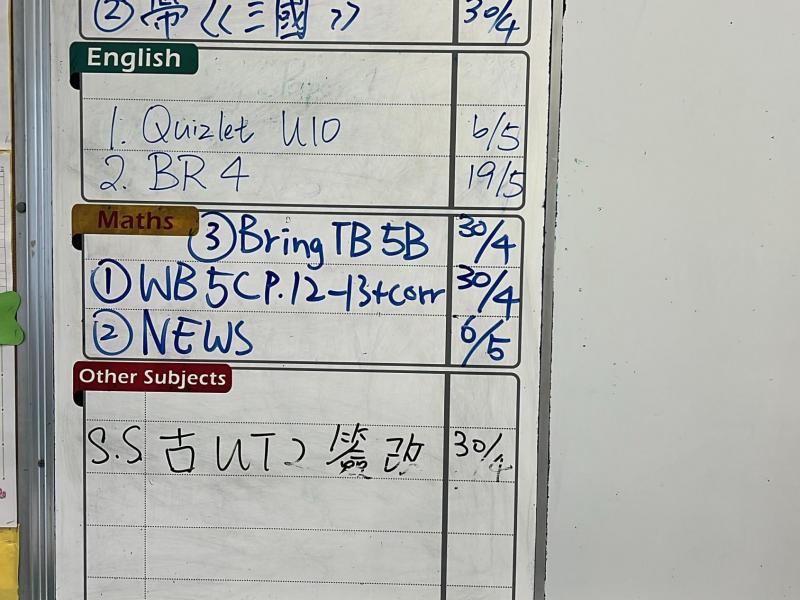 ② 帶《三國》 30/4
English
1. Quizlet U10 6/5
2. BR 4 19/5
Maths
③ Bring TB 5B 30/4
① WB 5C P.12-13+corr 30/4
② NEWS 6/5
Other Subjects
S.S UT 改 30/4